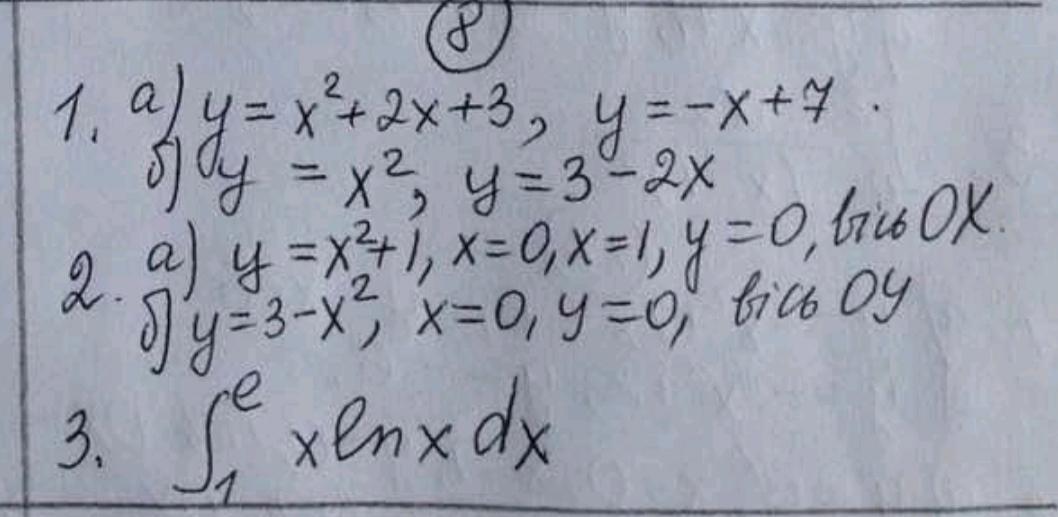 8
1. а) y = x²+2x+3, y = -x+7.
б) y = x², y = 3-2x
2. а) y = x²+1, x=0, x=1, y=0, вісь OX.
б) y = 3-x², x=0, y=0, вісь OY
3. ∫₁ᵉ x ln x dx